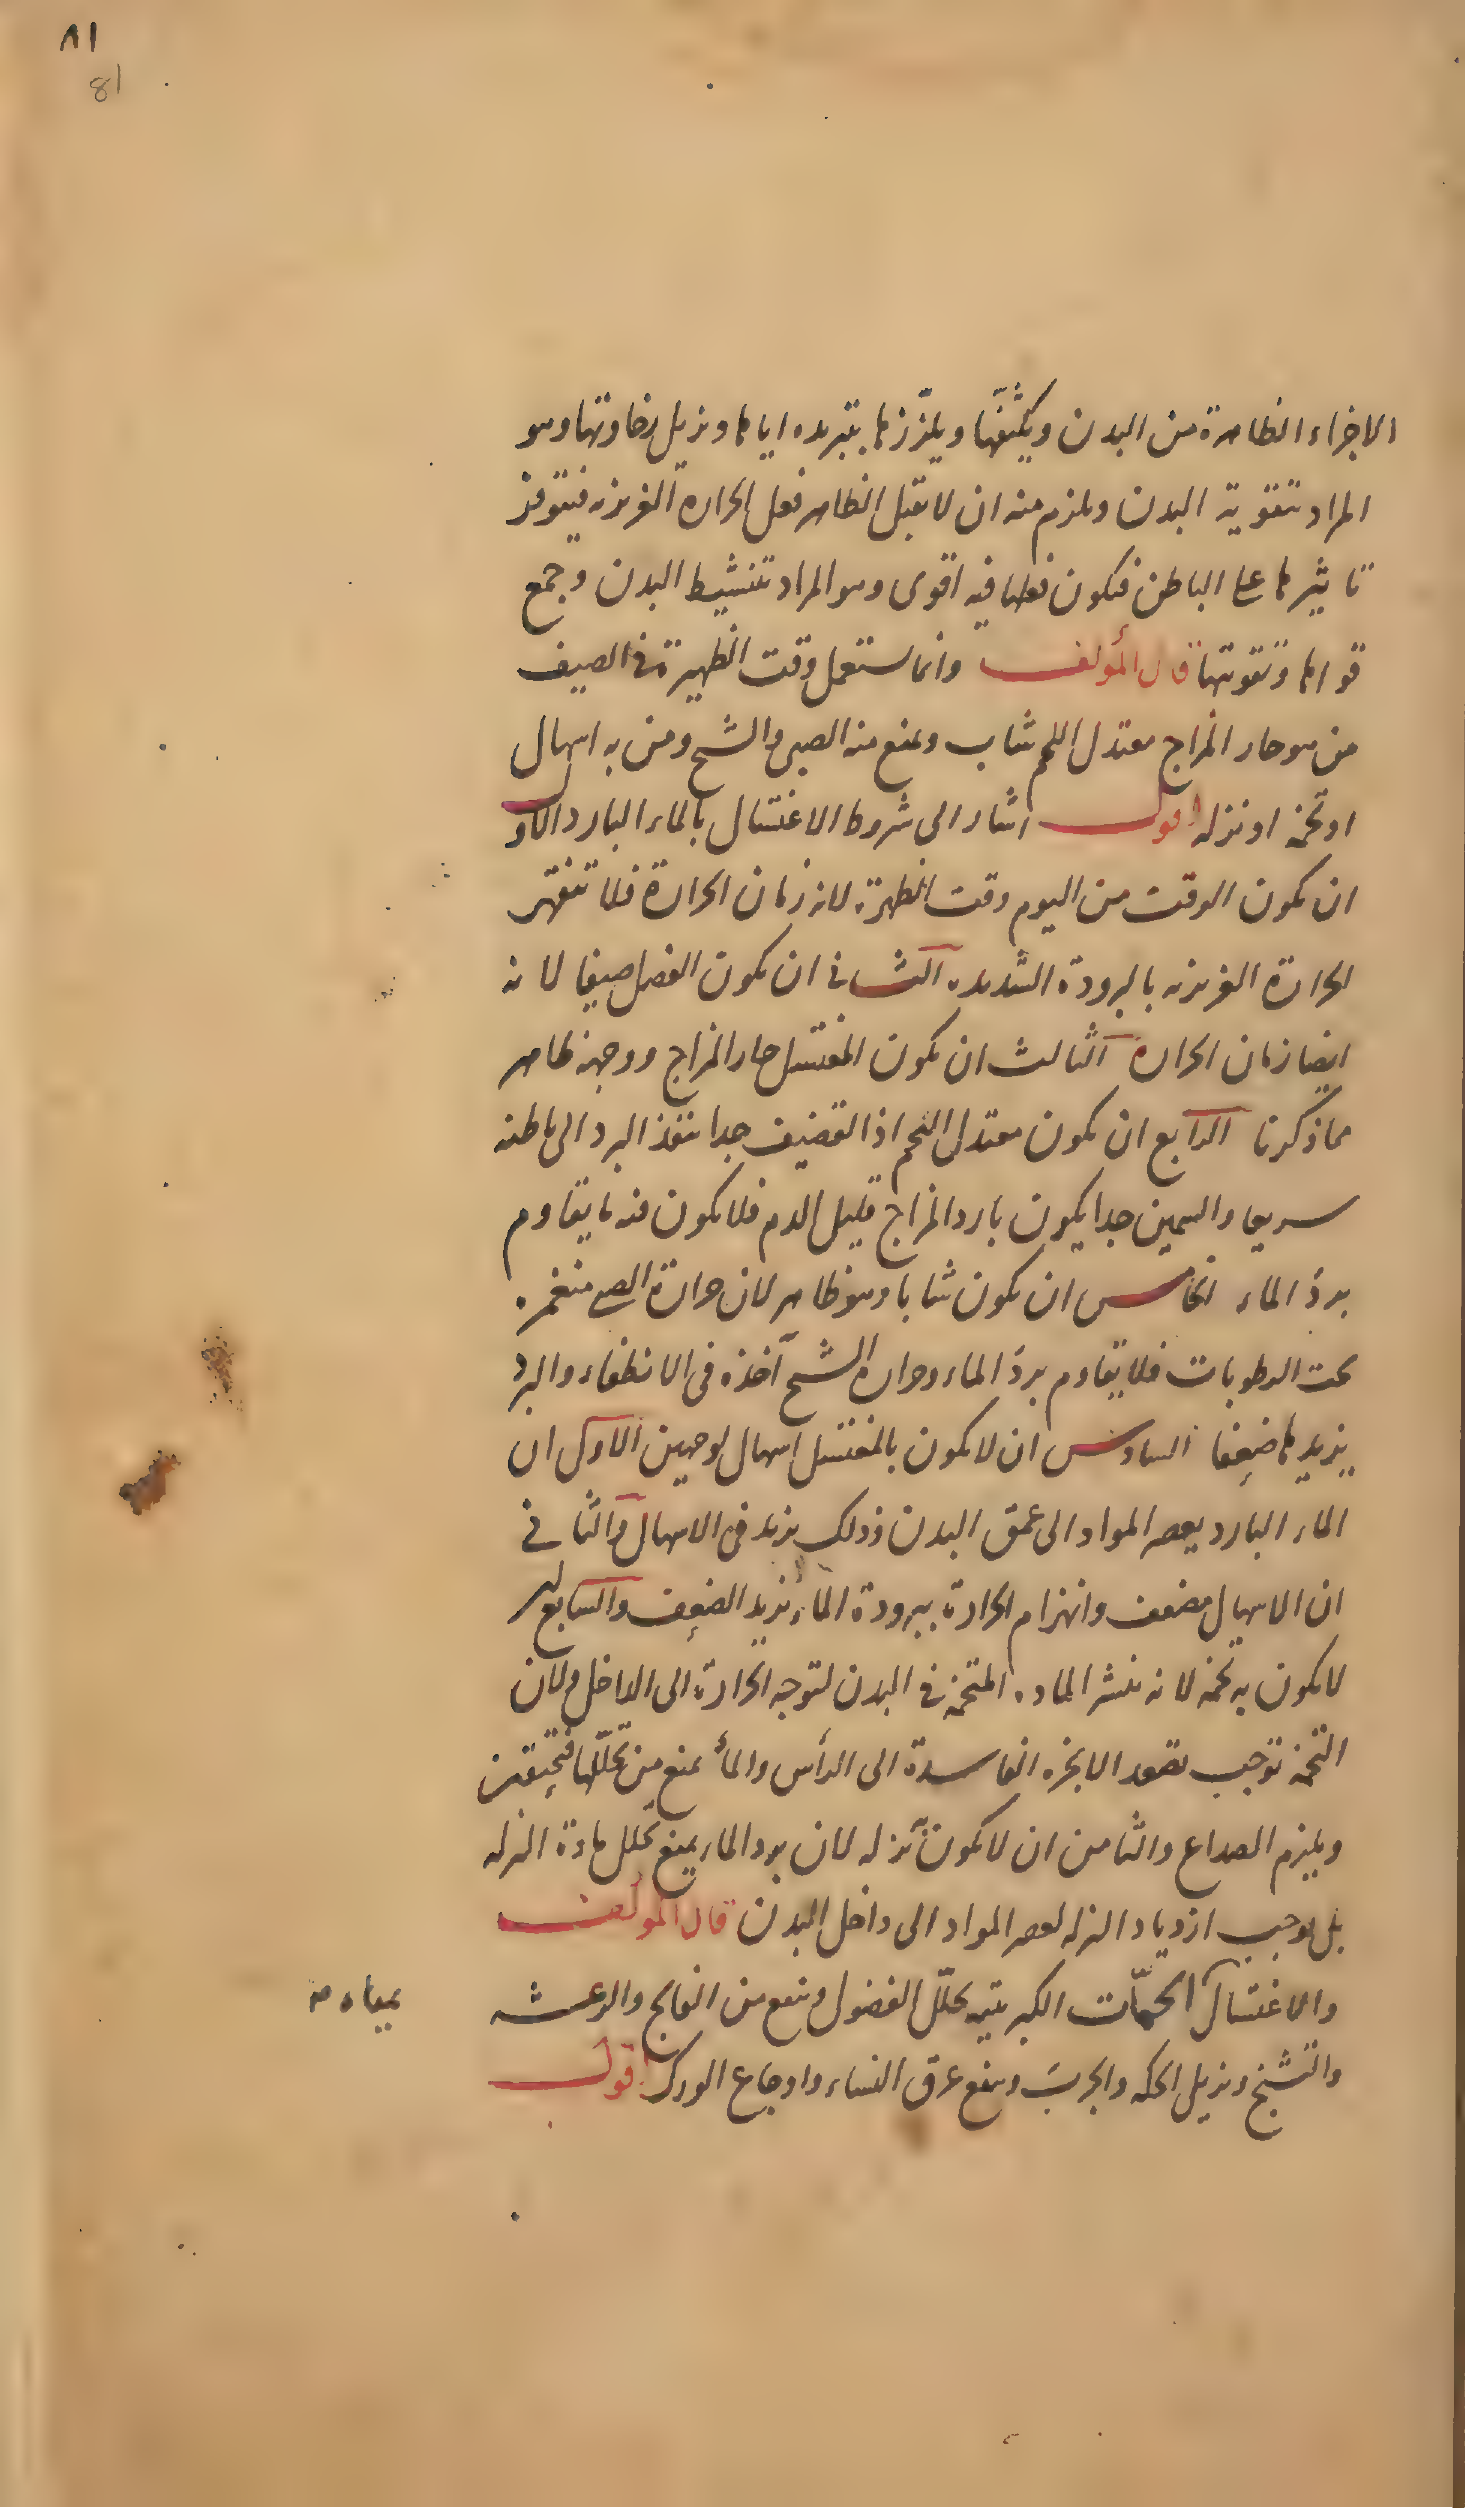 ٨١
81
الاجزاء الظاهرة من البدن ويكثّفها ويلزّزها بتبريده اياها ويزيل رخاوتها وهو
المراد بتقوية البدن ويلزم منه ان لا يقبل الظاهر فعل الحرارة الغريزيه فيتوفر
تاثيرها على الباطن فيكون فعلها فيه اقوى وهو المراد بتنشيط البدن وجمع
قواها وتقويتها قال المؤلف وانما يستعمل وقت الظهيرة في الصيف
من هو حار المزاج معتدل اللحم شاب ويمنع منه الصبي والشيخ ومن به اسهال
او تخمة او نزله اقول اشار الى شروط الاغتسال بالماء البارد الاول
ان يكون الوقت من اليوم وقت الظهيرة لانه زمان الحرارة فلا تنقهر
الحرارة الغريزيه بالبرودة الشديده الثاني ان يكون الفصل صيفا لانه
ايضا زمان الحرارة الثالث ان يكون المغتسل حار المزاج ووجهه ظاهر
مما ذكرنا الرابع ان يكون معتدل اللحم اذ القضيف جدا ينفذ البرد الى باطنه
سريعا والسمين جدا يكون بارد المزاج قليل الدم فلا يكون فيه ما يقاوم
برد الماء الخامس ان يكون شابا وهو ظاهر لان حرارة الصبي منغمره
تحت الرطوبات فلا يقاوم برد الماء وحرارة الشيخ آخذه في الانطفاء والبرد
يزيدها ضعفا السادس ان لا يكون بالمغتسل اسهال لوجهين الاول ان
الماء البارد يعصر المواد الى عمق البدن وذلك يزيد في الاسهال والثاني
ان الاسهال مضعف وانهزام الحرارة ببرودة الماء يزيد الضعف والسابع ان
لا يكون به تخمه لانه ينشر الماده المتخمه في البدن لتوجه الحرارة الى الداخل ولان
التخمه توجب تصعد الابخره الفاسدة الى الرأس والماء يمنع من تحللها فتحتقن
ويلزم الصداع والثامن ان لا يكون به نزله لان برد الماء يمنع تحلل مادة النزله
بل يوجب ازدياد النزله لعصر المواد الى داخل البدن قال المؤلف
والاغتسال الحمّات الكبريتيه يحلّل الفضول وينفع من الفالج والرعشه
بمياه صـ
والتشنج ويزيل الحكه والجرب وينفع عرق النساء واوجاع الورك اقول